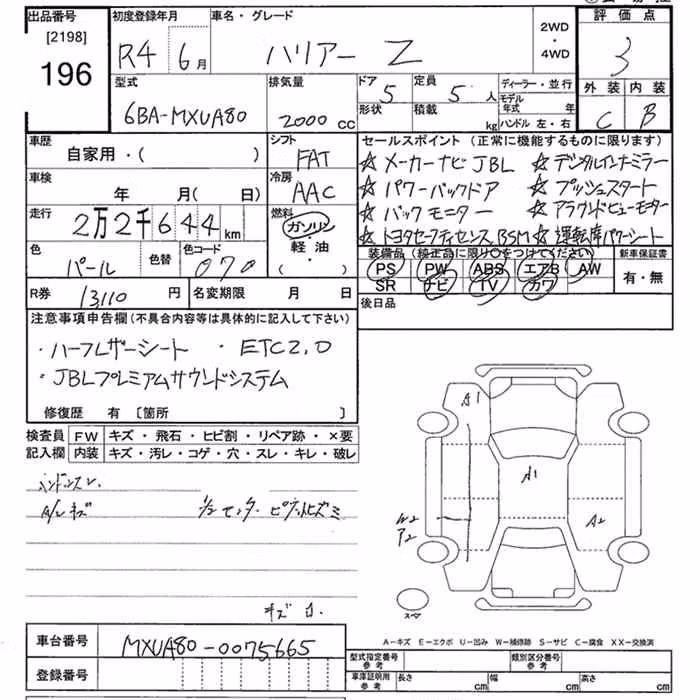 出品番号 初度登録年月 車名・グレード 2WD・4WD 評価点
[2198]
196 R4 6月 ハリアー Z 3
型式 排気量 ドア 5 定員 5人 ディーラー・並行 外装 内装
6BA-MXUA80 2000 CC 形状 積載 kg モデル年式 年 ハンドル 左・右 C B
車歴 シフト セールスポイント(正常に機能するものに限ります)
自家用・( ) FAT ☆メーカーナビJBL ☆デジタルインナーミラー
車検 冷房 ☆パワーバックドア ☆プッシュスタート
年 月( 日) AAC ☆バックモニター ☆アラウンドビューモニター
走行 2万2千644km 燃料 ガソリン・軽油・( ) ☆トヨタセーフティセンス BSM ☆運転席パワーシート
色 色替 色コード 装備品(純正品に限り○をつけてください) 新車保証書
パール 070 PS PW ABS エアB AW 有・無
SR ナビ TV カワ
R券 13110円 名変期限 月 日 後日品
注意事項申告欄(不具合内容等は具体的に記入して下さい)
・ハーフレザーシート ・ETC2.0
・JBLプレミアムサウンドシステム
修復歴 有 〔箇所 〕
検査員記入欄 FW キズ・飛石・ヒビ割・リペア跡・×要
内装 キズ・汚レ・コゲ・穴・スレ・キレ・破レ
ハンドルスレ
A/Lキズ
キズ
A1
A1
W2
P2
A2
スペア
A－キズ E－エクボ U－凹み W－補修跡 S－サビ C－腐食 XX－交換済
車台番号 MXUA80-0075665 型式指定番号 参考 類別区分番号 参考
登録番号 車庫証明用 参考 長さ cm 幅 cm 高さ cm